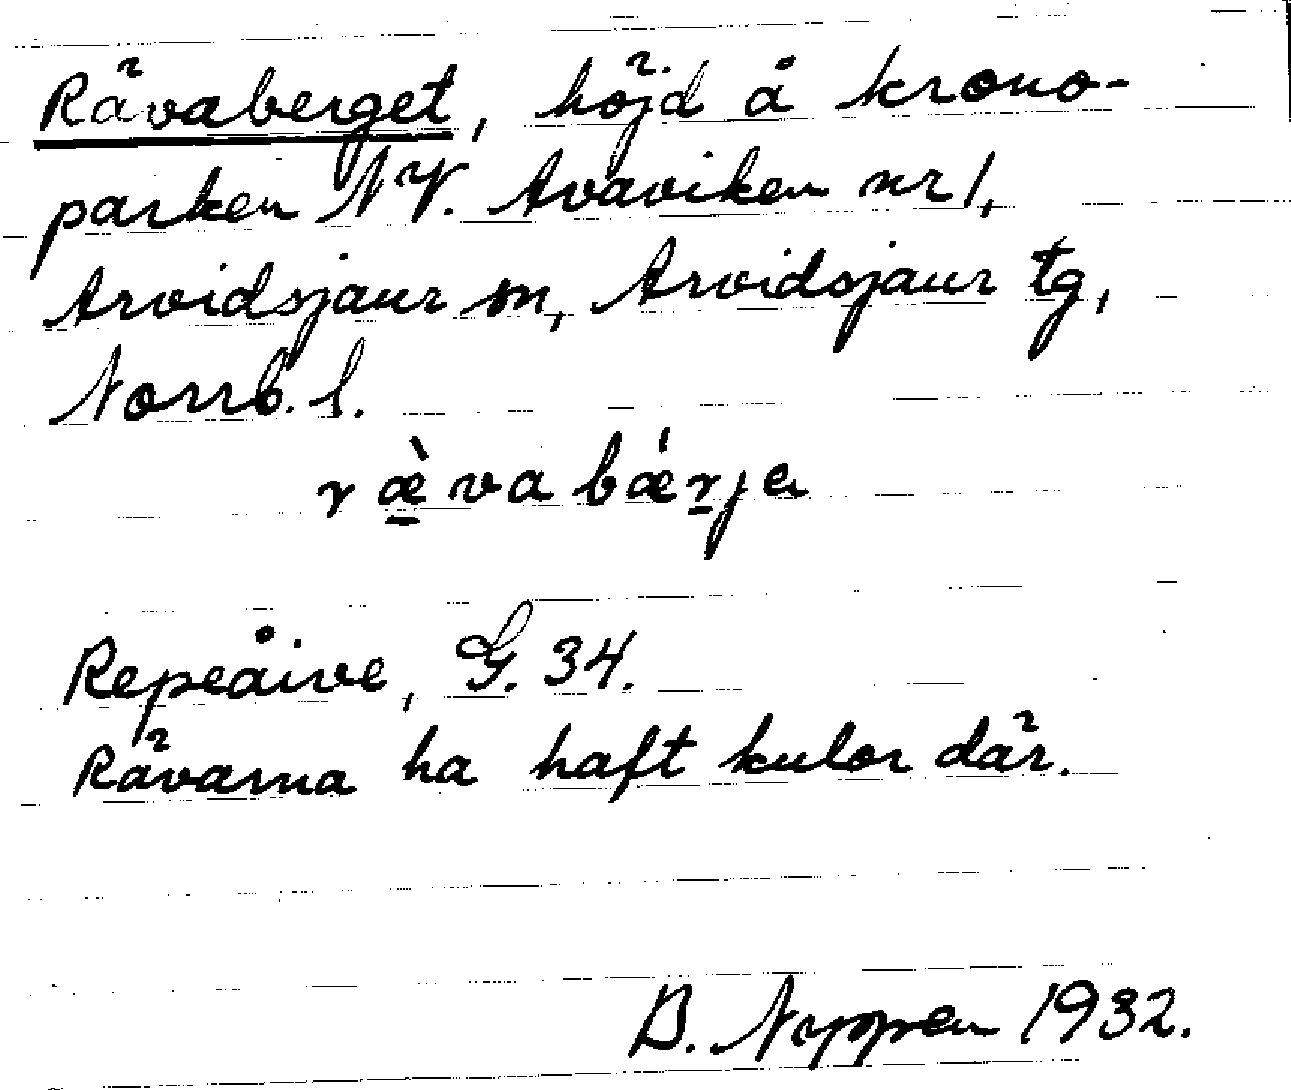 Rävaberget, höjd å krono-
parken NV. Avaviken nr 1,
Arvidsjaur sn, Arvidsjaur tg,
Norrb. l.
ræ̀va bǽrja
Repeåive, G. 34.
Rävarna ha haft kulor där.
B. 1932.